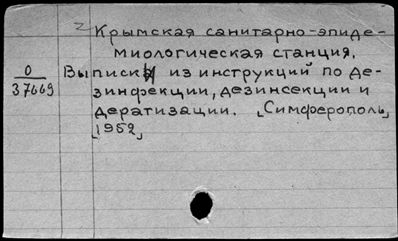 Крымская санитарно-эпиде-
миологическая станция.
О
37669
Выписки из инструкций по де-
зинфекции, дезинсекции и
дератизации. [Симферополь,
1952]